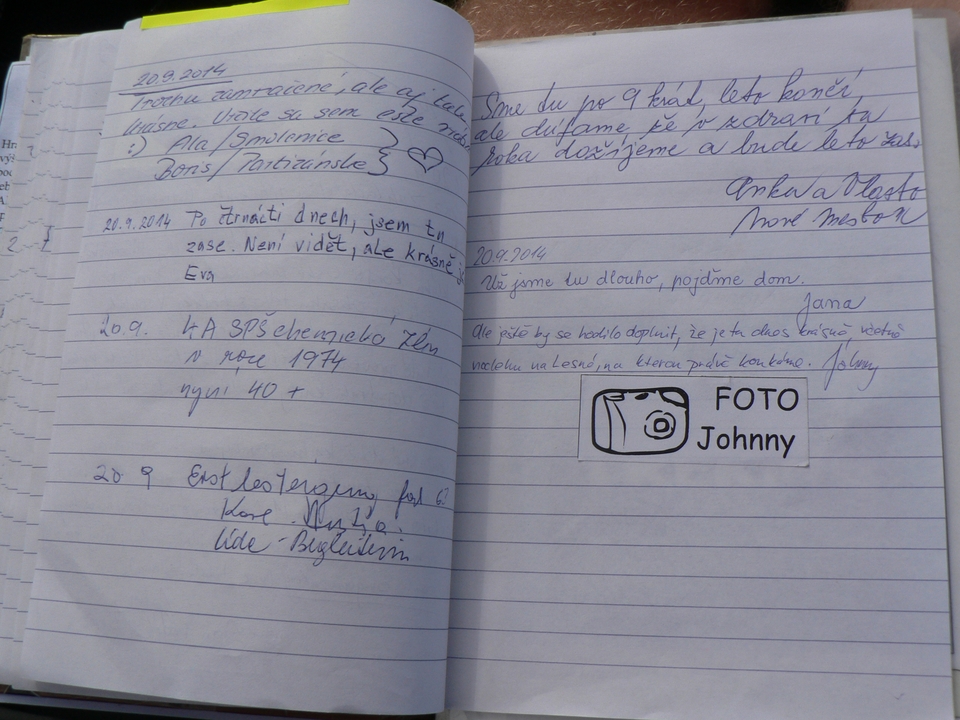 20.9.2014
Trochu zamračené, ale aj tak
krásne.
:) Ala/Smolenice
Boris/Partizánske
20.9.2014 Po čtrnácti dnech, jsem tu
zase. Není vidět, ale krásně
Eva
20.9. 4A SPŠ chemická Zlín
v roce 1974
nyní 40 +
20 9 Erstbesteigung
Lída - Begleiterin
Sme tu po 9 krát, leto končí,
ale dúfame, že v zdraví tu
roka dožijeme a bude leto zas.
Anka a Vlasto
Nové Mesto
20.9.2014
Už jsme tu dlouho, pojďme dom.
Jana
Ale ještě by se hodilo doplnit, že je tu dnes krásně včetně
na Lesné, na kterou právě koukáme. Johnny
FOTO
Johnny